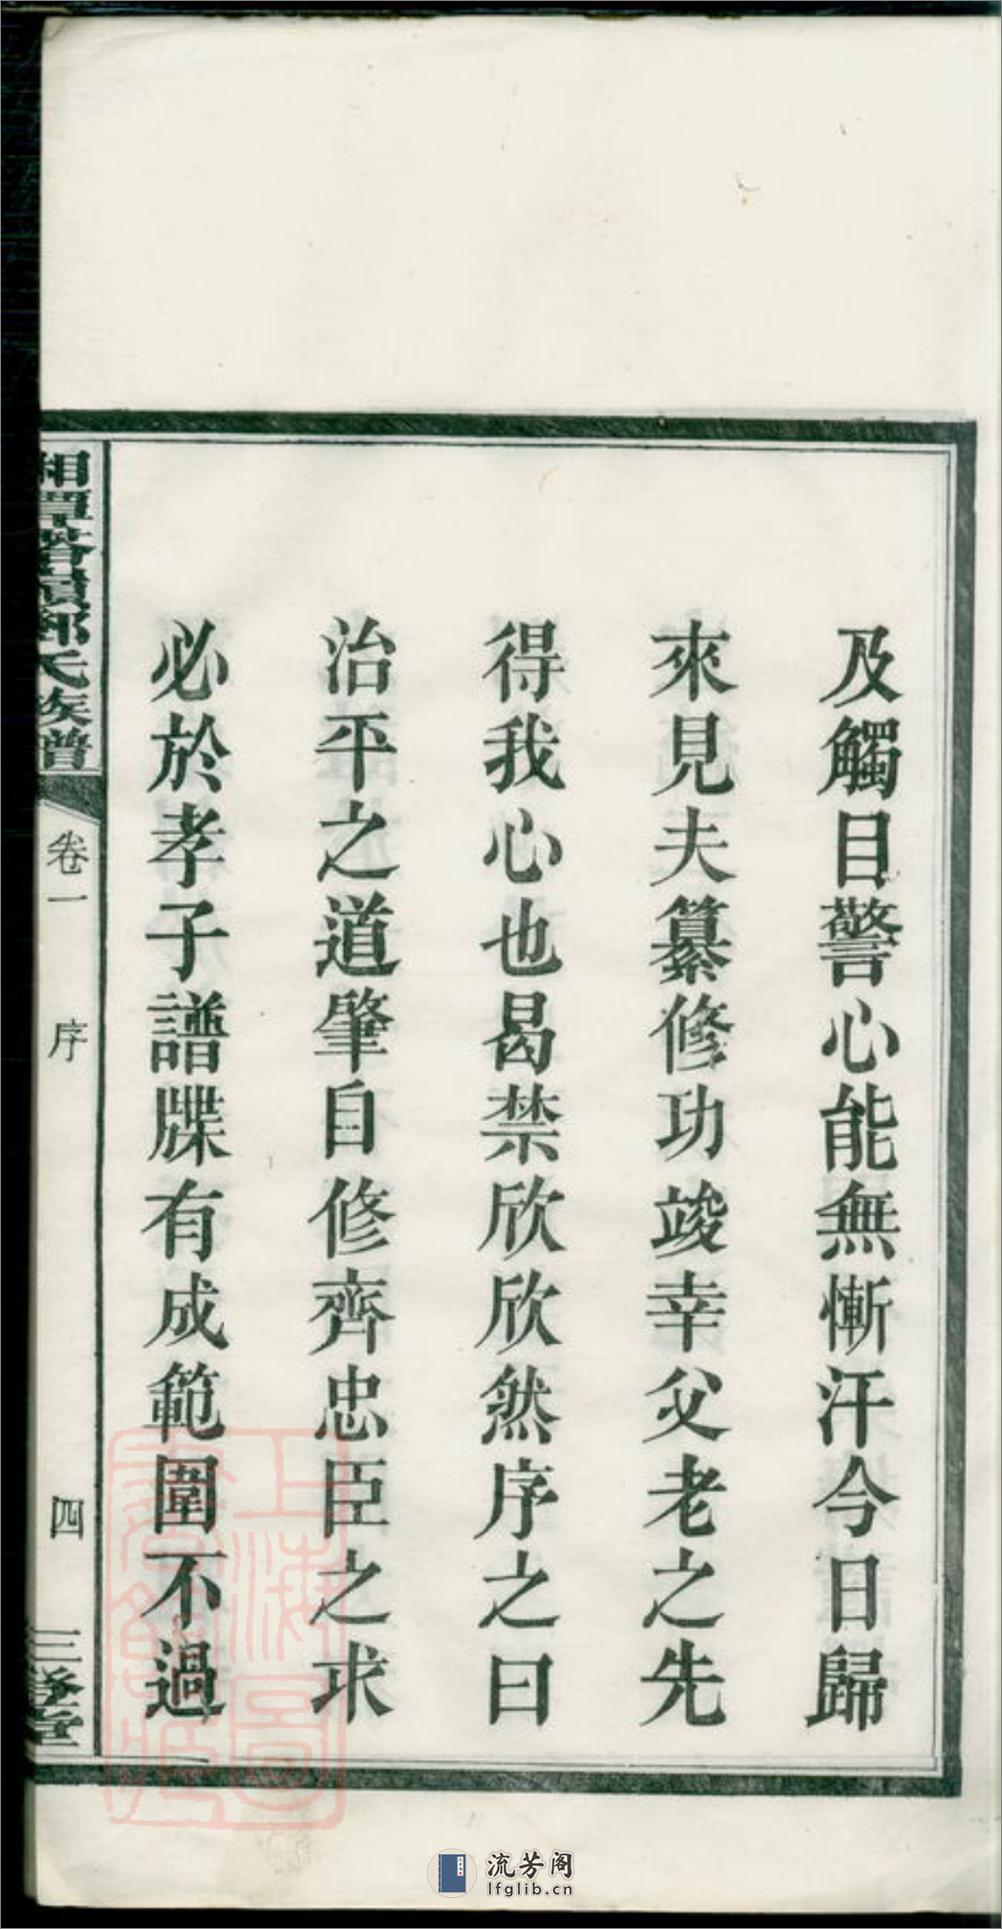 及觸目警心能無慚汗今日歸
來見夫纂修功竣幸父老之先
得我心也曷禁欣欣然序之曰
治平之道肇自修齊忠臣之求
必於孝子譜牒有成範圍不過
氏族譜
卷一
序
四
三
上海圖
流芳阁
lfglib.cn